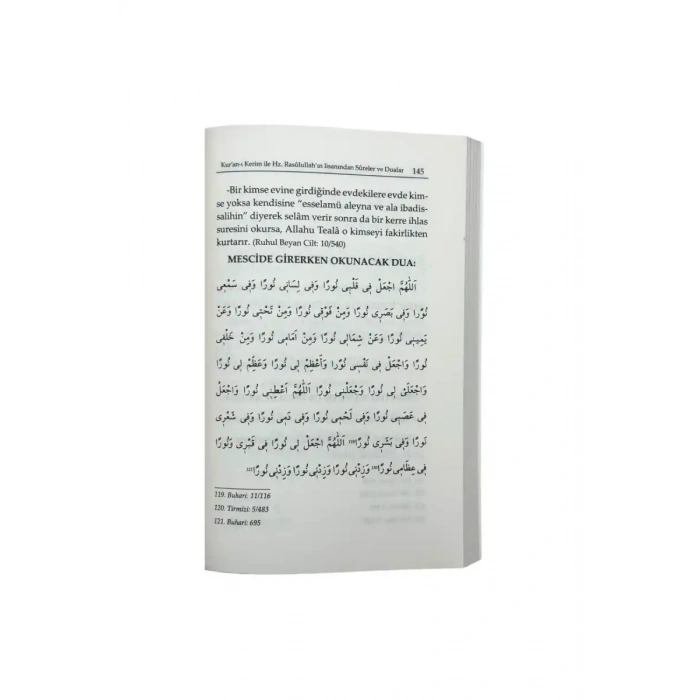 Kur'an-ı Kerim ile Hz. Rasûlullah'ın lisanından Sûreler ve Dualar 145
-Bir kimse evine girdiğinde evdekilere evde kim-
se yoksa kendisine "esselamü aleyna ve ala ibadis-
salihin" diyerek selâm verir sonra da bir kerre ihlas
suresini okursa, Allahu Tealâ o kimseyi fakirlikten
kurtarır. (Ruhul Beyan Cilt: 10/540)
MESCİDE GİRERKEN OKUNACAK DUA:
اَللّٰهُمَّ اجْعَلْ فِي قَلْبِي نُورًا وَفِي لِسَانِي نُورًا وَفِي سَمْعِي
نُورًا وَفِي بَصَرِي نُورًا وَمِنْ فَوْقِي نُورًا وَمِنْ تَحْتِي نُورًا وَعَنْ
يَمِينِي نُورًا وَعَنْ شِمَالِي نُورًا وَمِنْ اَمَامِي نُورًا وَمِنْ خَلْفِي
نُورًا وَاجْعَلْ فِي نَفْسِي نُورًا وَأَعْظِمْ لِي نُورًا وَعَظِّمْ لِي نُورًا
وَاجْعَلْ لِي نُورًا وَجْعَلْنِي نُورًا اَللّٰهُمَّ اَعْطِنِي نُورًا وَاجْعَلْ
فِي عَصَبِي نُورًا وَفِي لَحْمِي نُورًا وَفِي دَمِي نُورًا وَفِي شَعْرِي
نُورًا وَفِي بَشَرِي نُورًا (119) اَللّٰهُمَّ اجْعَلْ لِي نُورًا فِي قَبْرِي وَنُورًا
فِي عِظَامِي نُورًا (120) وَزِدْنِي نُورًا وَزِدْنِي نُورًا وَزِدْنِي نُورًا (121)
119. Buhari: 11/116
120. Tirmizi: 5/483
121. Buhari: 695